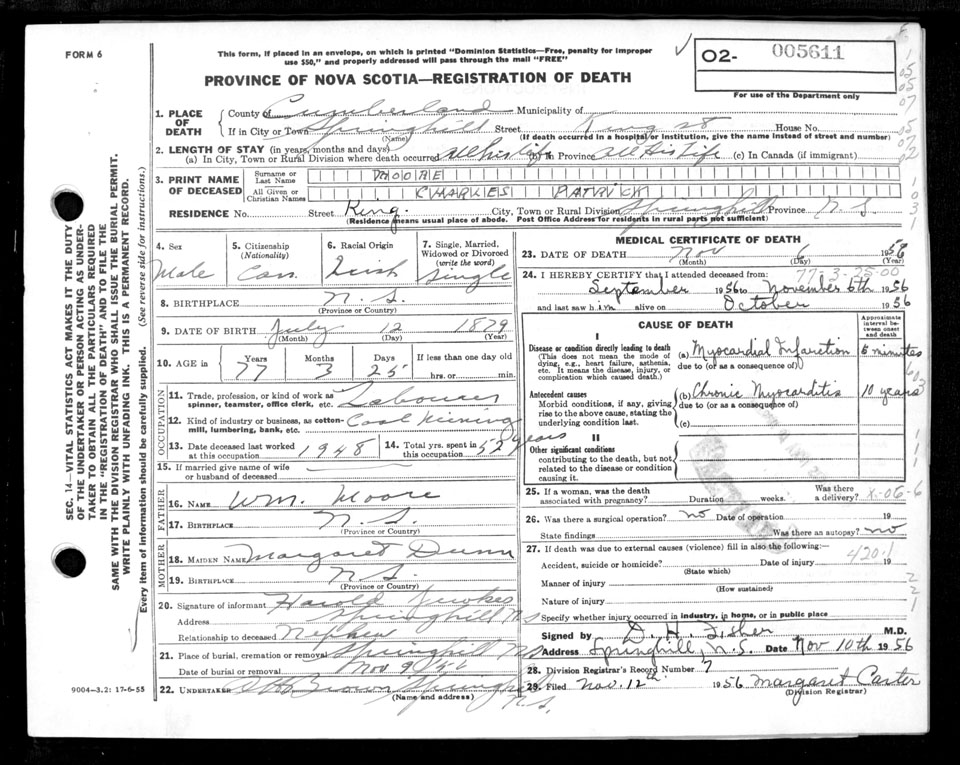 FORM 6
This form, if placed in an envelope, on which is printed "Dominion Statistics—Free, penalty for improper
use $50," and properly addressed will pass through the mail "FREE"
PROVINCE OF NOVA SCOTIA—REGISTRATION OF DEATH
02- 005611
For use of the Department only
SEC. 14—VITAL STATISTICS ACT MAKES IT THE DUTY
OF THE UNDERTAKER OR PERSON ACTING AS UNDER-
TAKER TO OBTAIN ALL THE PARTICULARS REQUIRED
IN THE "REGISTRATION OF DEATH" AND TO FILE THE
SAME WITH THE DIVISION REGISTRAR WHO SHALL ISSUE THE BURIAL PERMIT.
WRITE PLAINLY WITH UNFADING INK. THIS IS A PERMANENT RECORD.
Every item of information should be carefully supplied. (See reverse side for instructions.)
1. PLACE OF DEATH
County of Cumberland Municipality of
If in City or Town Springhill Street King St House No.
(Name) (If death occurred in a hospital or institution, give the name instead of street and number)
2. LENGTH OF STAY (in years, months and days)
(a) In City, Town or Rural Division where death occurred all his life (b) In Province all His Life (c) In Canada (if immigrant)
3. PRINT NAME OF DECEASED
Surname or Last Name MOORE
All Given or Christian Names CHARLES PATRICK
RESIDENCE No. Street King. City, Town or Rural Division Springhill Province N.S.
(Residence means usual place of abode. Post Office Address for residents in rural parts not sufficient)
4. Sex Male
5. Citizenship (Nationality) Can.
6. Racial Origin Irish
7. Single, Married, Widowed or Divorced (write the word) Single
8. BIRTHPLACE N.S.
(Province or Country)
9. DATE OF BIRTH July 12 1879
(Month) (Day) (Year)
10. AGE in Years 77 Months 3 Days 25 If less than one day old hrs. or min.
OCCUPATION
11. Trade, profession, or kind of work as spinner, teamster, office clerk, etc. Labourer
12. Kind of industry or business, as cotton-mill, lumbering, bank, etc. Coal Mining
13. Date deceased last worked at this occupation 1948
14. Total yrs. spent in this occupation 52 years
15. If married give name of wife or husband of deceased
FATHER
16. NAME Wm. Moore
17. BIRTHPLACE N.S.
(Province or Country)
MOTHER
18. MAIDEN NAME Margaret Dunn
19. BIRTHPLACE N.S.
(Province or Country)
20. Signature of informant Harold
Address Springhill N.S
Relationship to deceased Nephew
21. Place of burial, cremation or removal Springhill N.S
Date of burial or removal Nov 9 56
22. UNDERTAKER Brown Springhill N.S.
(Name and address)
9004-3.2: 17-6-55
MEDICAL CERTIFICATE OF DEATH
23. DATE OF DEATH Nov 6 1956
(Month) (Day) (Year)
77-3-25-00
24. I HEREBY CERTIFY that I attended deceased from:
September 1956 to November 6th 1956
and last saw him alive on October 1956
CAUSE OF DEATH
Approximate interval between onset and death
I
Disease or condition directly leading to death
(This does not mean the mode of dying, e.g., heart failure, asthenia, etc. It means the disease, injury, or complication which caused death.)
(a) Myocardial Infarction 5 minutes
due to (or as a consequence of)
Antecedent causes
Morbid conditions, if any, giving rise to the above cause, stating the underlying condition last.
(b) Chronic Myocarditis 10 years
due to (or as a consequence of)
(c)
II
Other significant conditions
contributing to the death, but not related to the disease or condition causing it.
25. If a woman, was the death associated with pregnancy? Duration weeks. Was there a delivery? X-06-6
26. Was there a surgical operation? no Date of operation 19
State findings Was there an autopsy? no
27. If death was due to external causes (violence) fill in also the following:— 420.1
Accident, suicide or homicide? Date of injury 19
(State which)
Manner of injury
(How sustained)
Nature of injury
Specify whether injury occurred in industry, in home, or in public place
Signed by D. H. Fisher M.D.
Address Springhill, N.S. Date Nov 10th 1956
28. Division Registrar's Record Number 7
29. Filed Nov. 12th 1956 Margaret Carter
(Division Registrar)